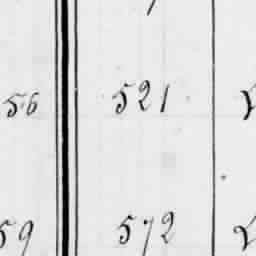 56 521
59 572